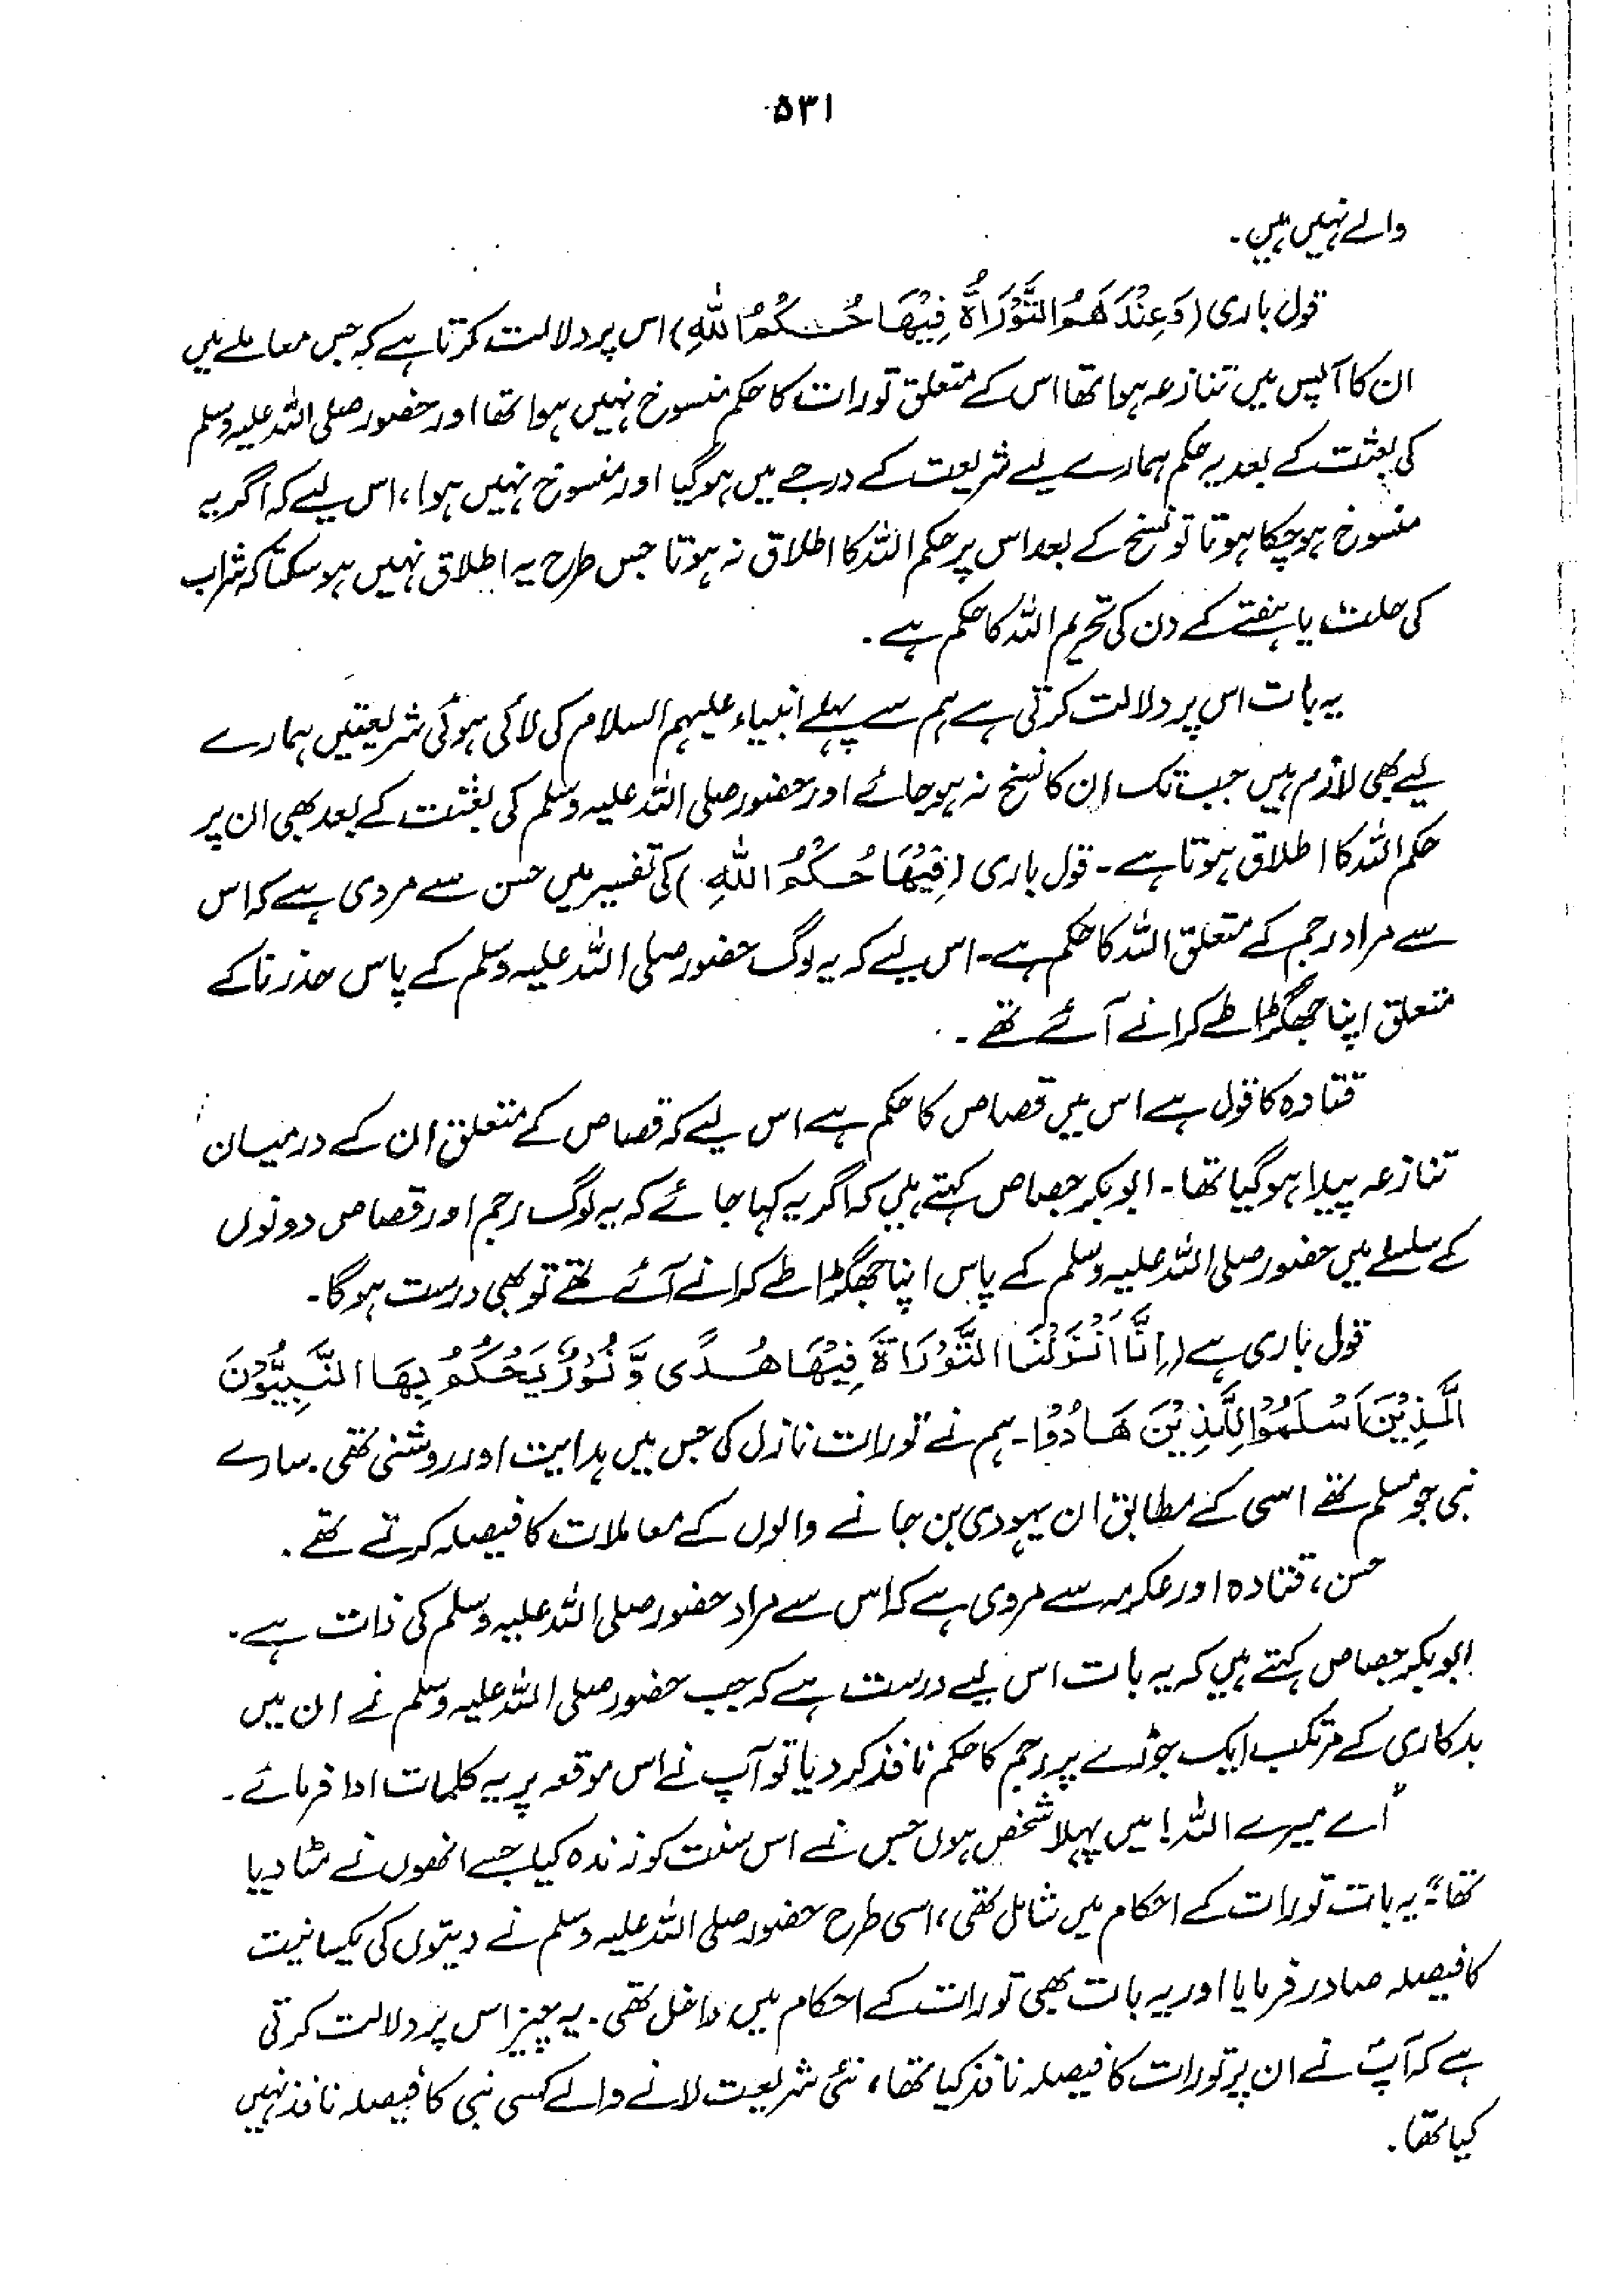 ۵۳۱
والے نہیں ہیں۔
قول باری (وَعِنْدَهُمُ التَّوْرَاةُ فِيْهَا حُكْمُ اللهِ) اس پر دلالت کرتا ہے کہ جس معاملے میں
ان کا آپس میں تنازعہ ہوا تھا اس کے متعلق تورات کا حکم منسوخ نہیں ہوا تھا اور حضور صلی اللہ علیہ وسلم
کی بعثت کے بعد یہ حکم ہمارے لیے شریعت کے درجے میں ہوگیا اور منسوخ نہیں ہوا، اس لیے کہ اگر یہ
منسوخ ہوچکا ہوتا تو نسخ کے بعد اس پر حکم اللہ کا اطلاق نہ ہوتا جس طرح یہ اطلاق نہیں ہوسکتا کہ شراب
کی حلت یا ہفتے کے دن کی تحریم اللہ کا حکم ہے۔
یہ بات اس پر دلالت کرتی ہے ہم سے پہلے انبیاء علیہم السلام کی لائی ہوئی شریعتیں ہمارے
لیے بھی لازم ہیں جب تک ان کا نسخ نہ ہو جائے اور حضور صلی اللہ علیہ وسلم کی بعثت کے بعد بھی ان پر
حکم اللہ کا اطلاق ہوتا ہے۔ قول باری (فِيْهَا حُكْمُ اللهِ) کی تفسیر میں حسن سے مروی ہے کہ اس
سے مراد رجم کے متعلق اللہ کا حکم ہے۔ اس لیے کہ یہ لوگ حضور صلی اللہ علیہ وسلم کے پاس حد زنا کے
متعلق اپنا جھگڑا طے کرانے آئے تھے۔
قتادہ کا قول ہے اس میں قصاص کا حکم ہے اس لیے کہ قصاص کے متعلق ان کے درمیان
تنازعہ پیدا ہوگیا تھا۔ ابوبکر جصاص کہتے ہیں کہ اگر یہ کہا جائے کہ یہ لوگ رجم اور قصاص دونوں
کے سلسلے میں حضور صلی اللہ علیہ وسلم کے پاس اپنا جھگڑا طے کرانے آئے تھے تو بھی درست ہوگا۔
قول باری ہے (اِنَّا اَنْزَلْنَا التَّوْرَاةَ فِيْهَا هُدًى وَّ نُوْرٌ يَحْكُمُ بِهَا النَّبِيُّوْنَ
الَّذِيْنَ اَسْلَمُوْا لِلَّذِيْنَ هَادُوْا۔ ہم نے تورات نازل کی جس میں ہدایت اور روشنی تھی۔ سارے
نبی جو مسلم تھے اسی کے مطابق ان یہودی بن جانے والوں کے معاملات کا فیصلہ کرتے تھے۔
حسن، قتادہ اور عکرمہ سے مروی ہے کہ اس سے مراد حضور صلی اللہ علیہ وسلم کی ذات ہے۔
ابوبکر جصاص کہتے ہیں کہ یہ بات اس لیے درست ہے کہ جب حضور صلی اللہ علیہ وسلم نے ان میں
بدکاری کے مرتکب ایک جوڑے پر رجم کا حکم نافذ کر دیا تو آپ نے اس موقعہ پر یہ کلمات ادا فرمائے۔
"اے میرے اللہ! میں پہلا شخص ہوں جس نے اس سنت کو زندہ کیا جسے انھوں نے مٹا دیا
تھا"؛ یہ بات تورات کے احکام میں شامل تھی، اسی طرح حضور صلی اللہ علیہ وسلم نے دیتوں کی یکسانیت
کا فیصلہ صادر فرمایا اور یہ بات بھی تورات کے احکام میں داخل تھی۔ یہ چیز اس پر دلالت کرتی
ہے کہ آپؐ نے ان پر تورات کا فیصلہ نافذ کیا تھا، نئی شریعت لانے والے کسی نبی کا فیصلہ نافذ نہیں
کیا تھا۔